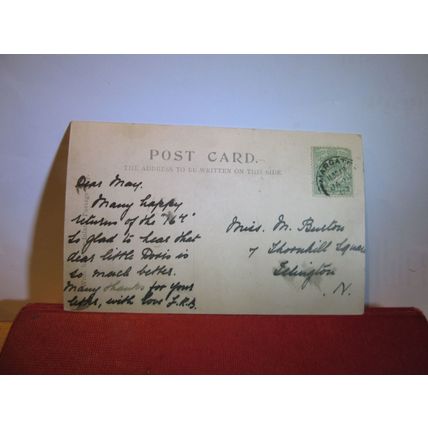 POST CARD.
THE ADDRESS TO BE WRITTEN ON THIS SIDE.
MARGATE
Dear May.
Many happy
returns of the "16th"
So glad to hear that
dear little Doris is
so much better.
Many thanks for your
letter, with love
Miss. M. Burton
7 Thornhill Square
Islington
N.